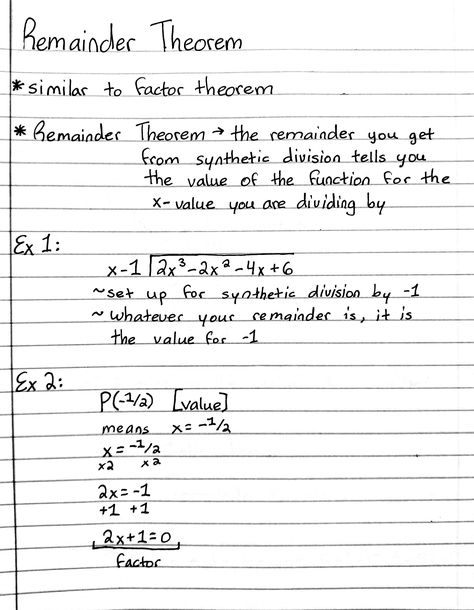 Remainder Theorem
* similar to factor theorem
* Remainder Theorem → the remainder you get
from synthetic division tells you
the value of the function for the
x-value you are dividing by
Ex 1:
x-1 ⟌ 2x³-2x²-4x+6
~set up for synthetic division by -1
~ whatever your remainder is, it is
the value for -1
Ex 2:
P(-1/2) [value]
means x= -1/2
x= -1/2
x2 x2
2x= -1
+1 +1
2x+1=0
factor